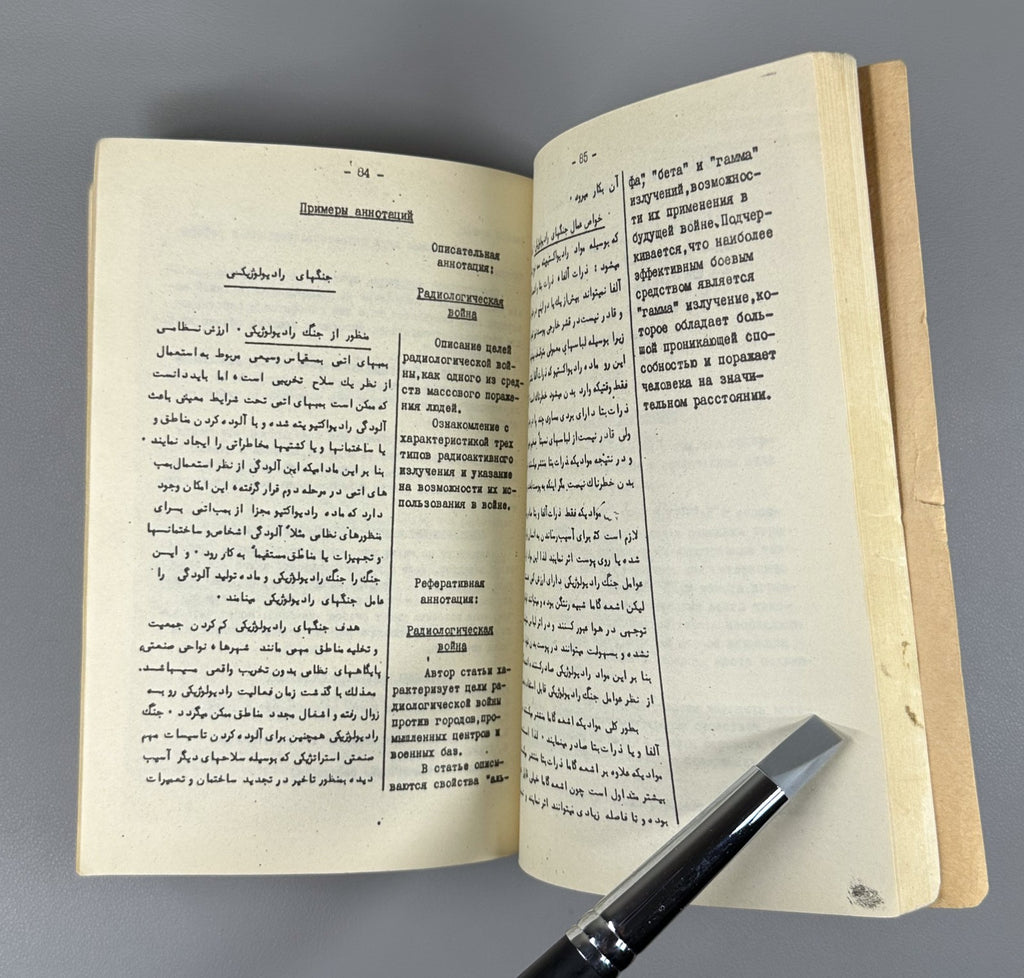 - 84 -
Примеры аннотаций
جنگهای رادیولوژیکی
منظور از جنگ رادیولوژیکی ۰ ارزش نظامی
بمبهای اتمی بمقیاس وسیعی مربوط به استعمال
از نظر یك سلاح تخریبی است ه اما باید دانست
که ممکن است بمبهای اتمی تحت شرایط معینی باعث
آلودگی رادیواکتیویته شده و با آلوده کردن مناطق و
یا ساختمانها و یا کشتیها مخاطراتی را ایجاد نمایند ۰
بنا بر این مادامیکه این آلودگی از نظر استعمال بمب
های اتمی در مرحله دوم قرار گرفته ه این امکان وجود
دارد که ماده رادیواکتیو مجزا از بمب اتمی برای
منظورهای نظامی مثلاً آلودگی اشخاص و ساختمانها
و تجهیزات یا مناطق مستقیماً به کار رود ۰ و این
جنگ را جنگ رادیولوژیکی و ماده تولید آلودگی را
عامل جنگهای رادیولوژیکی مینامند ۰
هدف جنگهای رادیولوژیکی کم کردن جمعیت
و تخلیه مناطق مهمی مانند شهرها ه نواحی صنعتی و
پایگاههای نظامی بدون تخریب واقعی میباشد.
معذلك با گذشت زمان فعالیت رادیولوژیکی رو به
زوال رفته و اشغال مجدد مناطق ممکن میگردد ۰ جنگ
رادیولوژیکی همچنین برای آلوده کردن تاسیسات مهم
صنعتی استراتژیکی که بوسیله سلاحهای دیگر آسیب
دیده بمنظور تاخیر در تجدید ساختمان و تعمیرات
Описательная
аннотация:
Радиологическая
война
Описание целей
радиологической вой-
ны,как одного из сред-
ств массового пораже-
ния людей.
Ознакомление с
характеристикой трех
типов радиоактивного
излучения и указание
на возможности их ис-
пользования в войне.
Реферативная
аннотация:
Радиологическая
война
Автор статьи ха-
рактеризует цели ра-
диологической войны
против городов,про-
мышленных центров и
военных баз.
В статье описы-
ваются свойства "аль-
- 85 -
آن بکار میرود ۰
خواص عمال جنگهای رادیولوژیکی
که بوسیله مواد رادیواکتیویته
میشود : ذرات آلفا ه ذرات بتا
آلفا نمیتواند بیش از یك یا دو اینچ در
و قادر نیست در قشر خارجی پوست
زیرا بوسیله لباسهای معمولی متوقف
این رو ماده رادیواکتیو که ذرات آلفا
فقط وقتیکه وارد بدن میشود خطرناك
ذرات بتا دارای بردی مساوی چند
ولی قادر نیست از لباسهای نسبتاً
و در نتیجه موادیکه ذرات بتا منتشر میکنند
بدن خطرناك نیست مگر اینکه
موادیکه فقط ذرات آلفا و بتا
لازم است که برای آسیب رساندن به انسان
شده یا روی پوست اثر نمایند لذا این
عوامل جنگ رادیولوژیکی دارای ارزش
لیکن اشعه گاما شبیه رنتگن بوده و میتوانند
توجهی در هوا عبور کنند و در اثر لباس
نشده و بسهولت میتوانند در پوست بدن
بنا بر این مواد رادیولوژیکی صادر کننده
از نظر عوامل جنگ رادیولوژیکی قابل استفاده
بطور کلی موادیکه اشعه گاما منتشر میکنند
آلفا و یا ذرات بتا صادر مینمایند ۰ لذا
موادیکه علاوه بر اشعه گاما ذرات بتا
بیشتر متداول است چون اشعه گاما خیلی
بوده و تا فاصله زیادی میتوانند اثر نمایند و
фа," "бета" и "гамма"
излучений,возможнос-
ти их применения в
будущей войне.Подчер-
кивается,что наиболее
эффективным боевым
средством является
"гамма" излучение,ко-
торое обладает боль-
шой проникающей спо-
собностью и поражает
человека на значи-
тельном расстоянии.